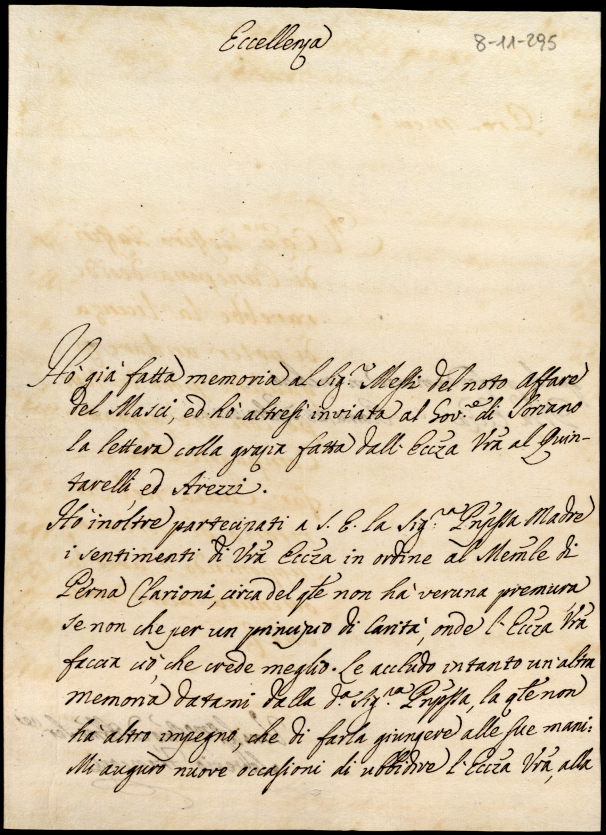 Eccellenza
8-11-295
Hò già fatta memoria al Sig.r Messi del noto affare
del Masci, ed hò altresì inviata al Gov.re di Soriano
la lettera colla grazia fatta dall' Ecc̃za Vrã al Quin-
tarelli, ed Arezzi.
Hò inoltre partecipati a S. E. la Sig.ra Pñpssa Madre
i sentimenti di Vrã Ecc̃za in ordine al Memle di
Perna Clarioni, circa del qle non hà veruna premura
se non che per un principio di Carità, onde l'Ecc̃za Vrã
faccia ciò che crede meglio. Le accludo intanto un'altra
memoria datami dalla d.a Sig.ra Pñpssa, la qle non
ha altro impegno, che di farla giungere alle sue mani.
Mi auguro nuove occasioni di ubbidire l'Ecc̃za Vrã, alla